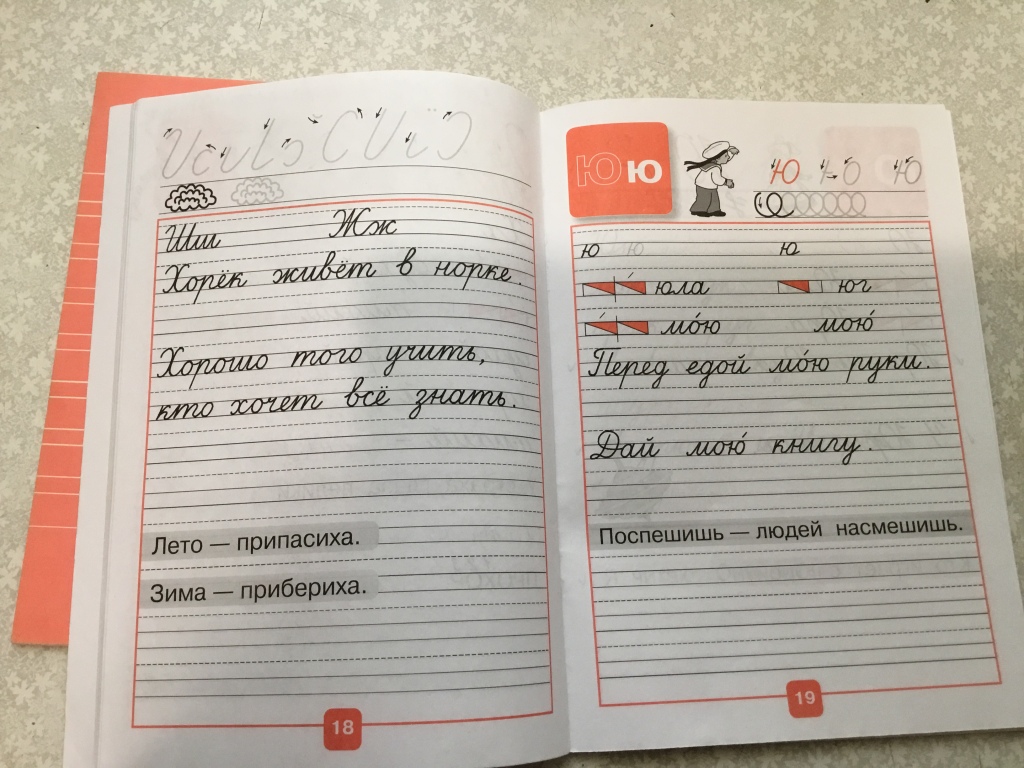 Шш Жж
Хорёк живёт в норке.
Хорошо того учить,
кто хочет всё знать.
Лето — припасиха.
Зима — прибериха.
18
Юю
ю ю ю
ю ю ю
юла юг
мо́ю мою́
Перед едой мо́ю руки.
Дай мою́ книгу.
Поспешишь — людей насмешишь.
19